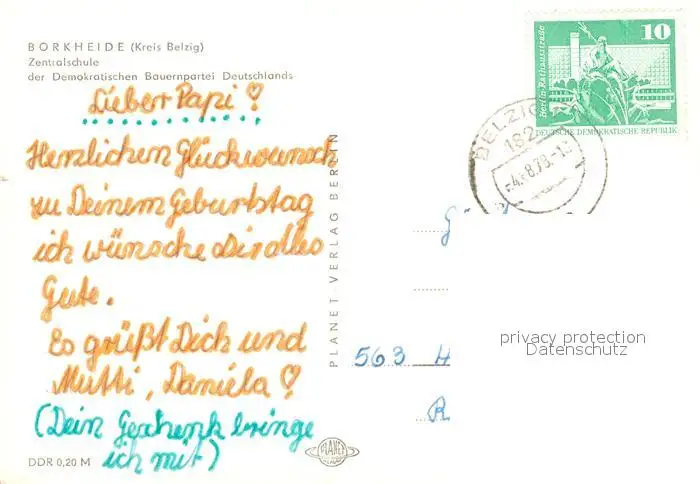 BORKHEIDE (Kreis Belzig)
Zentralschule
der Demokratischen Bauernpartei Deutschlands
Lieber Papi!
Herzlichen Glückwunsch
zu Deinem Geburtstag
ich wünsche Dir alles
Gute.
Es grüßt Dich und
Mutti, Daniela!
(Dein Geschenk bringe
ich mit)
DDR 0,20 M
PLANET
PLANET VERLAG BERLIN
10
Berlin, Rathausstraße
DEUTSCHE DEMOKRATISCHE REPUBLIK
BELZIG
182
-4.-8.78.-1
563 H
R
privacy protection
Datenschutz